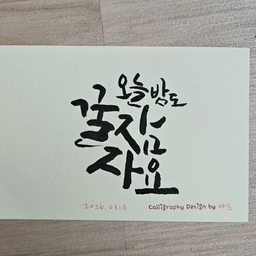 오늘밤도
꿀잠
자요
2026. 03.13
Calligraphy Design by